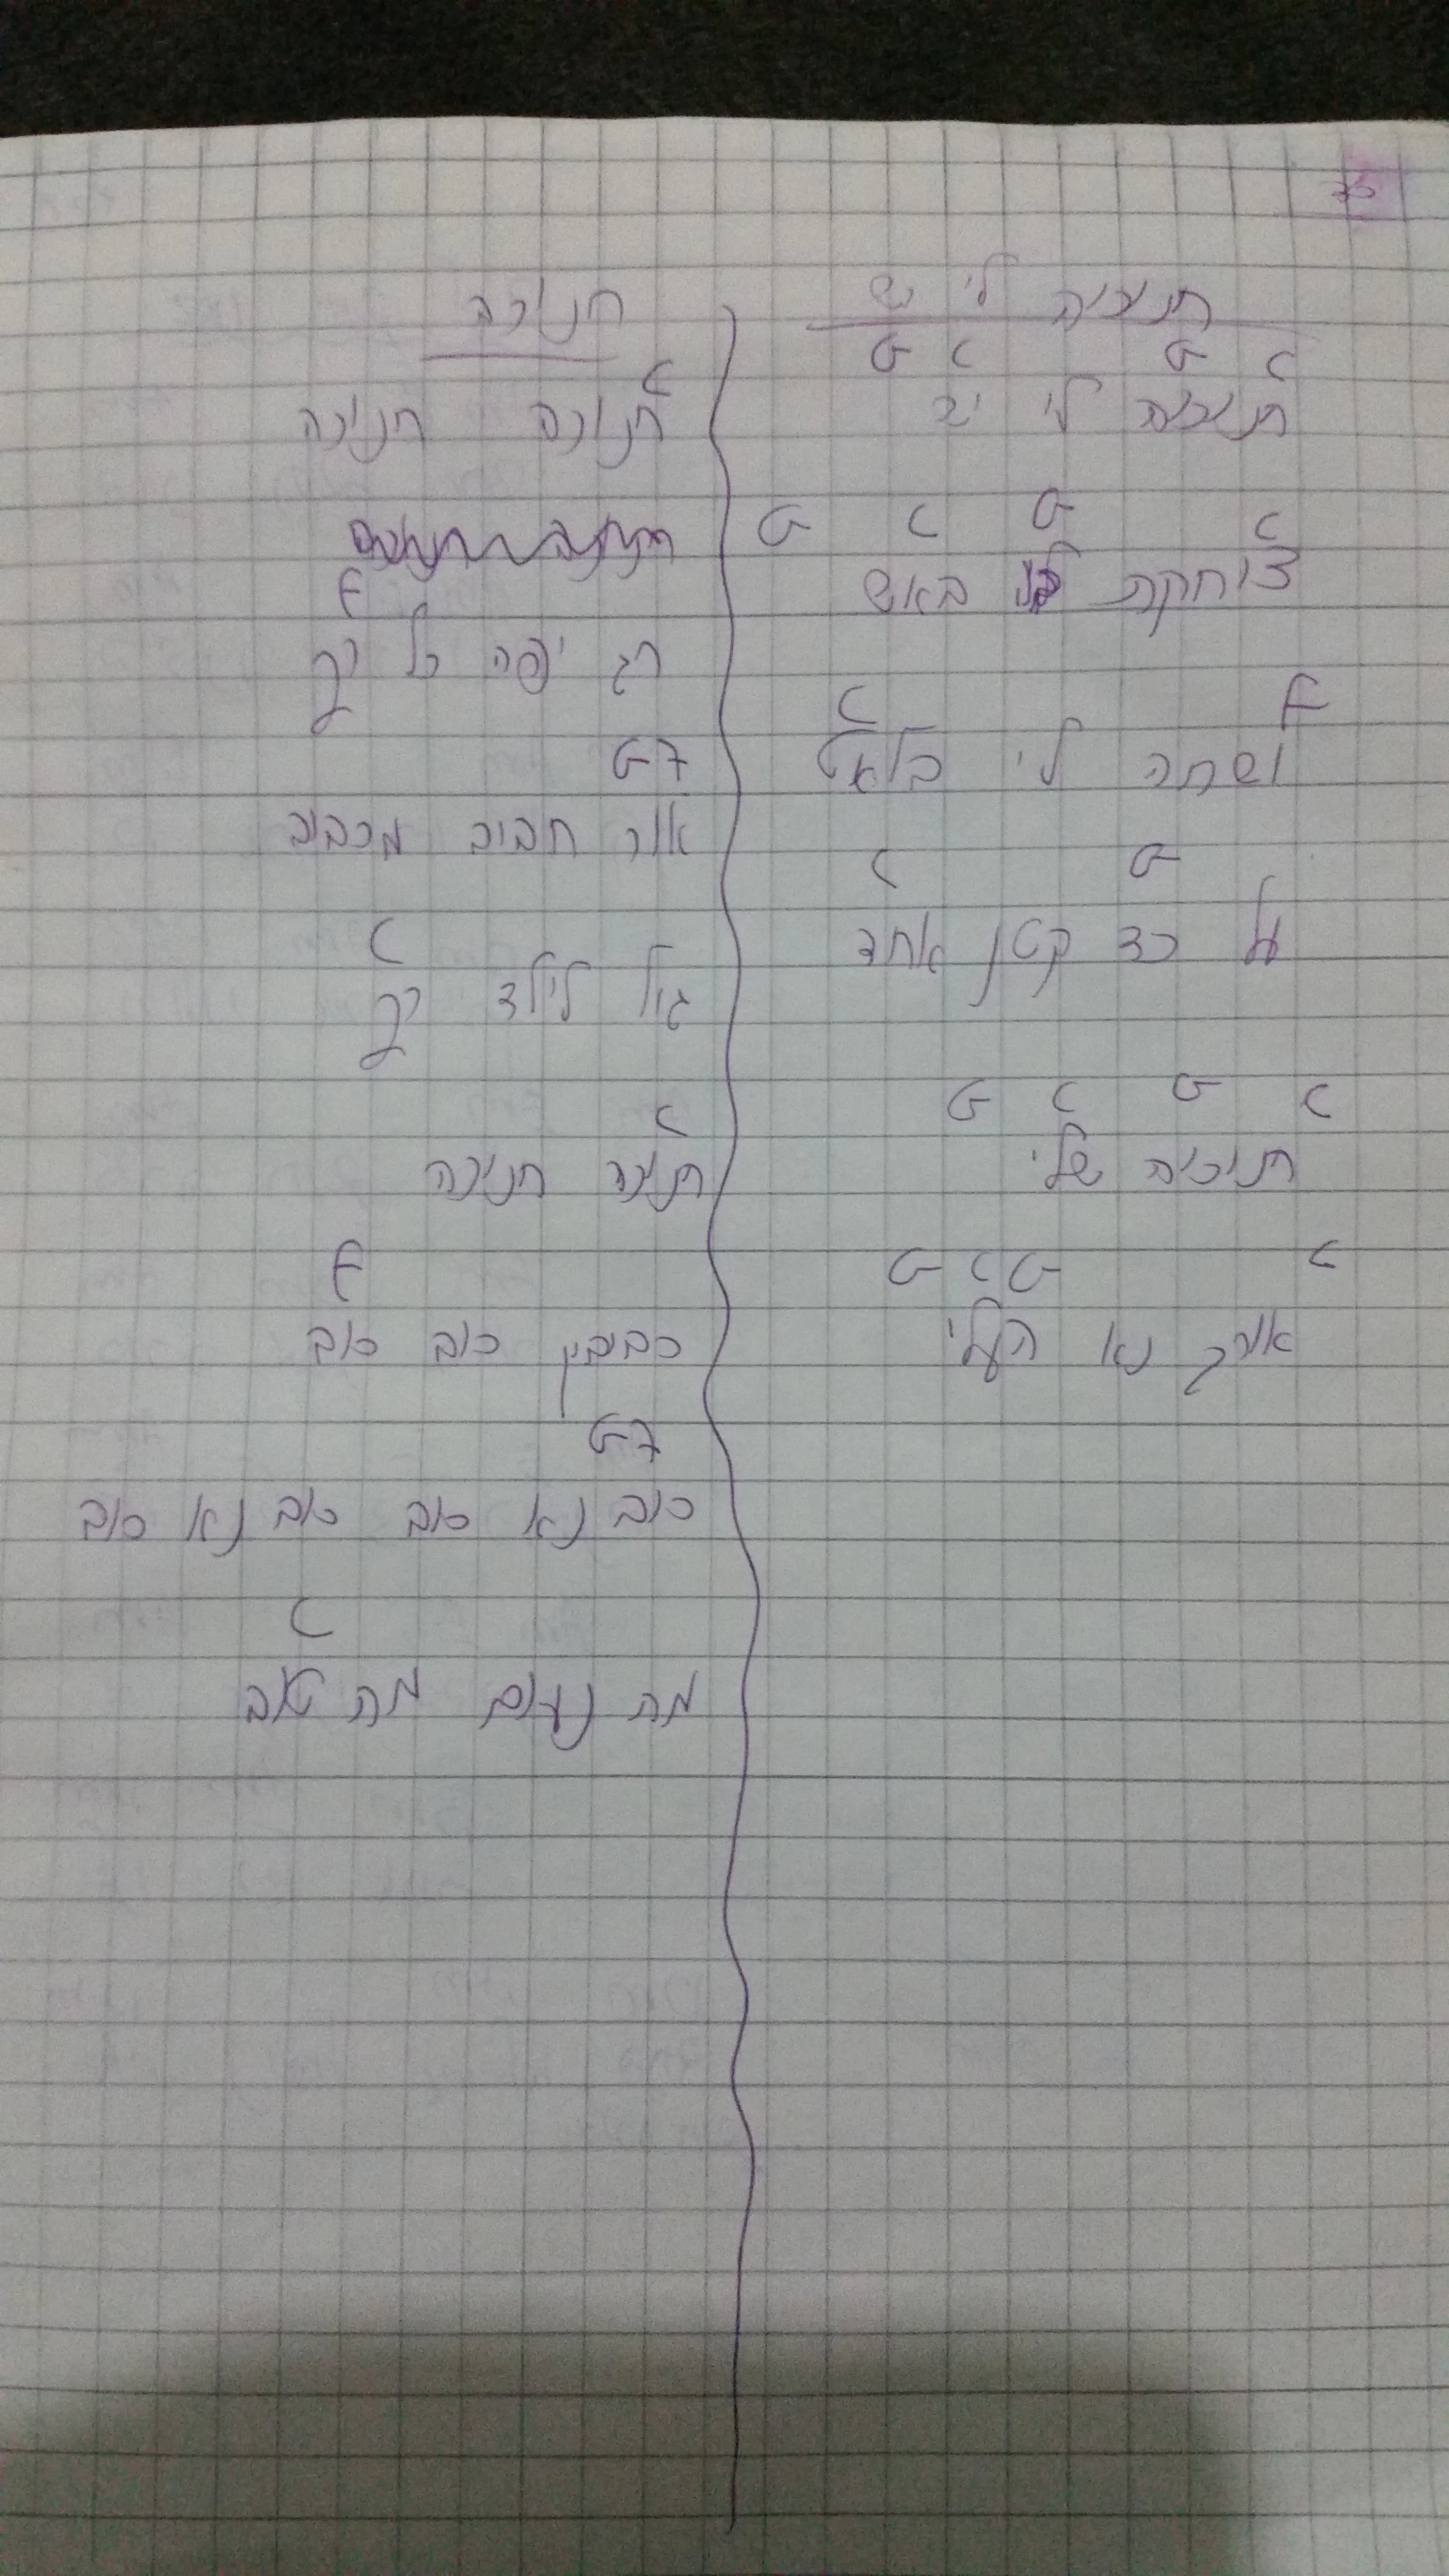 חנוכיה לי יש
G C G C
חנוכיה לי יש
G C G C
צוחקת באש
C F
ושחה לי בלאט
C G
על כד קטן אחד
G C G C
חנוכיה שלי
G C G C
אורך נא העלי
חנוכה
C
חנוכה חנוכה
F
חג יפה כל כך
G7
אור חביב מסביב
C
גיל לילד רך
C
חנוכה חנוכה
F
סביבון סוב סוב
G7
סוב נא סוב סוב נא סוב
C
מה נעים מה טוב